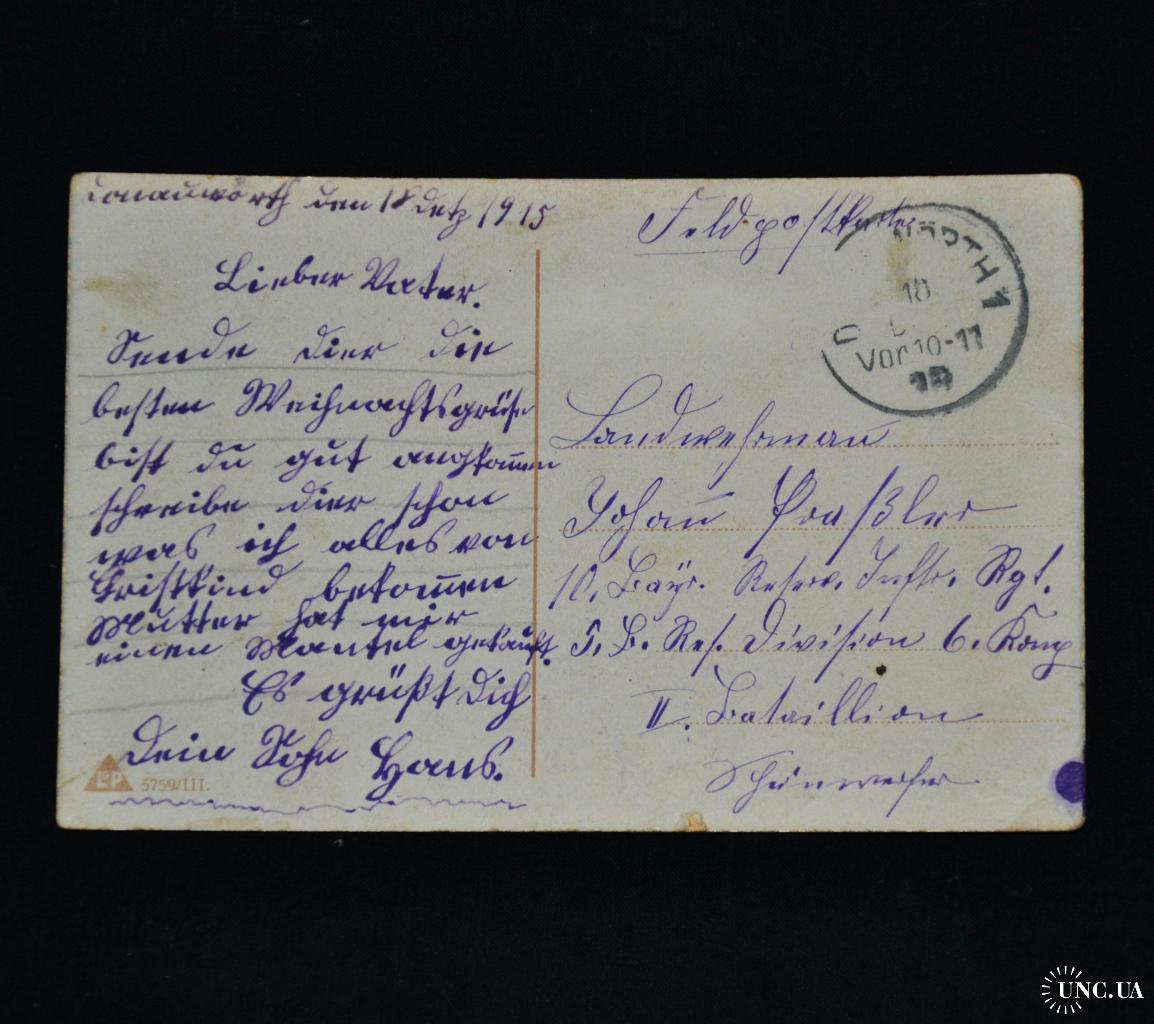 Donauwörth den 18 Detz 1915
Lieber Vater.
Sende dier die
besten Weihnachtsgrüse
bist du gut angkom̄en
schreibe dier schon
was ich alles von
Kristkind bekom̄en
Mutter hat mir
einen Mantel gekauft.
Es grüßt dich
Dein Sohn Hans.
L&P
5759/III.
Feldpostkarte
WÖRTH 1
18
Vor 10-11
15
Landwehrman̄
Johan̄
10. Bayr. Reserv. Inftr. Rgt.
5. B. Res. Division 6. Komp
II. Bataillion
UNC.UA